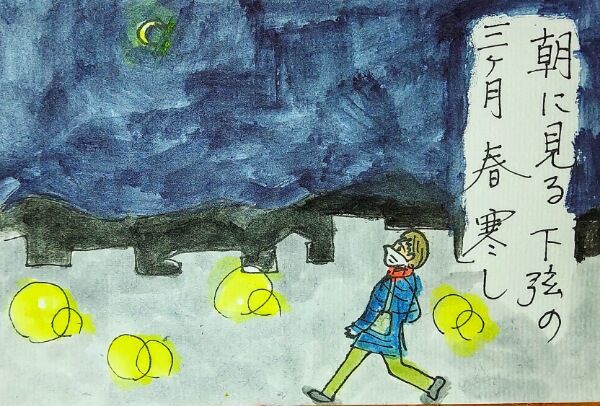 朝に見る下弦の
三ヶ月春寒し